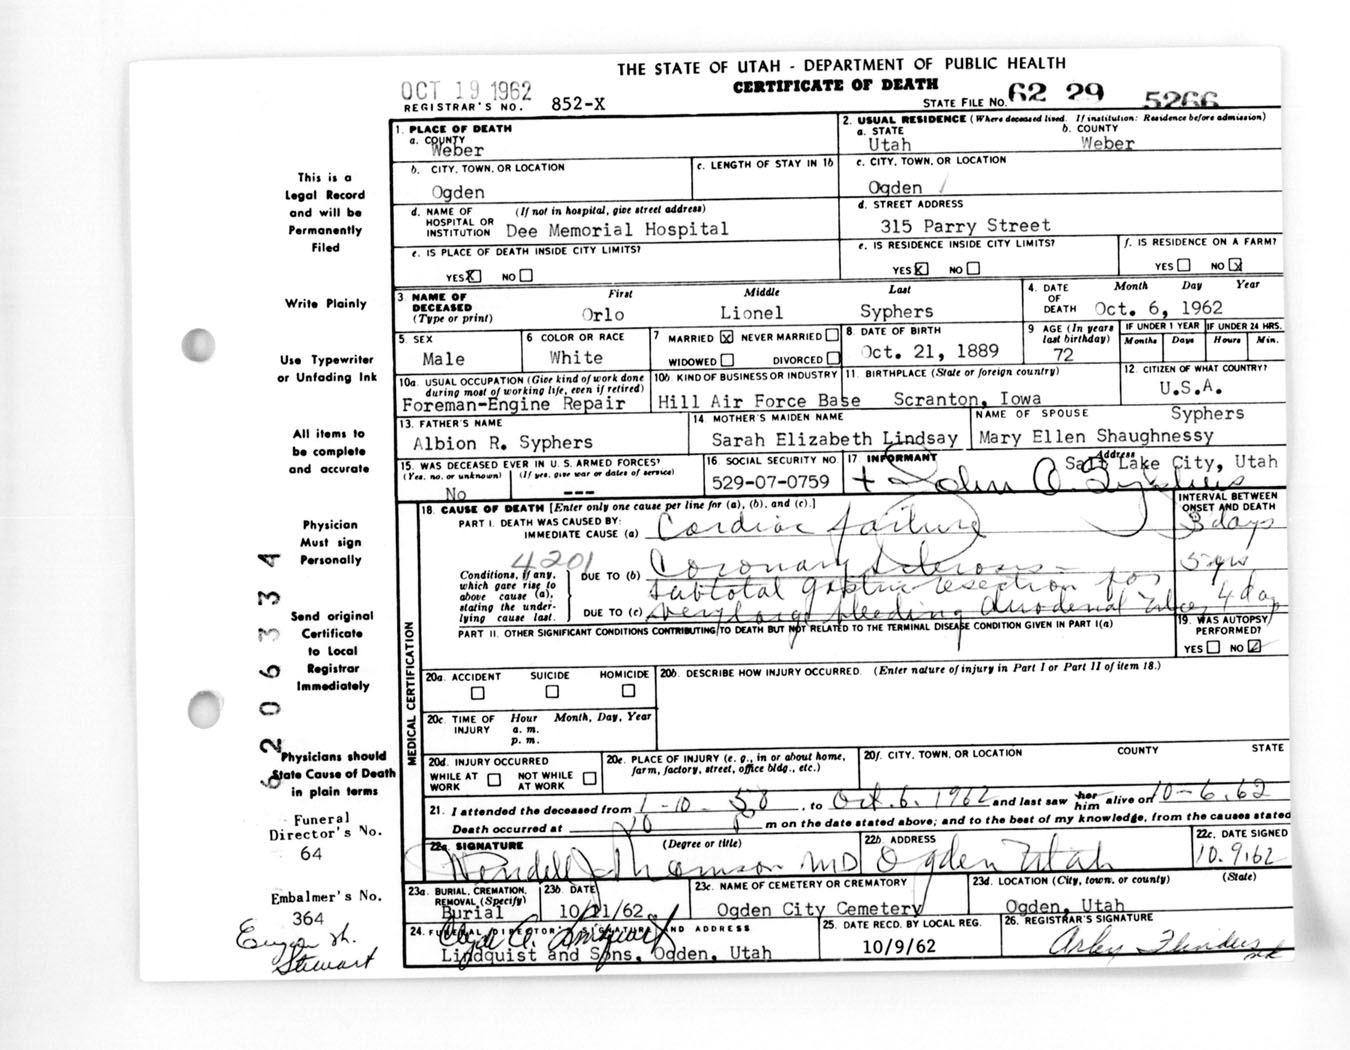 THE STATE OF UTAH - DEPARTMENT OF PUBLIC HEALTH
CERTIFICATE OF DEATH
OCT 19 1962
REGISTRAR'S NO. 852-X
STATE FILE NO. 62 29 5266
1. PLACE OF DEATH
a. COUNTY
Weber
2. USUAL RESIDENCE (Where deceased lived. If institution: Residence before admission)
a. STATE b. COUNTY
Utah Weber
b. CITY, TOWN, OR LOCATION
Ogden
c. LENGTH OF STAY IN 1b
c. CITY, TOWN, OR LOCATION
Ogden
d. NAME OF HOSPITAL OR INSTITUTION (If not in hospital, give street address)
Dee Memorial Hospital
d. STREET ADDRESS
315 Parry Street
e. IS PLACE OF DEATH INSIDE CITY LIMITS?
YES X NO
e. IS RESIDENCE INSIDE CITY LIMITS?
YES X NO
f. IS RESIDENCE ON A FARM?
YES NO X
3. NAME OF DECEASED (Type or print)
First Middle Last
Orlo Lionel Syphers
4. DATE OF DEATH Month Day Year
Oct. 6, 1962
5. SEX
Male
6 COLOR OR RACE
White
7 MARRIED X NEVER MARRIED
WIDOWED DIVORCED
8. DATE OF BIRTH
Oct. 21, 1889
9 AGE (In years last birthday)
72
IF UNDER 1 YEAR IF UNDER 24 HRS.
Months Days Hours Min.
10a. USUAL OCCUPATION (Give kind of work done during most of working life, even if retired)
Foreman-Engine Repair
10b. KIND OF BUSINESS OR INDUSTRY
Hill Air Force Base
11. BIRTHPLACE (State or foreign country)
Scranton, Iowa
12. CITIZEN OF WHAT COUNTRY?
U.S.A.
13. FATHER'S NAME
Albion R. Syphers
14. MOTHER'S MAIDEN NAME
Sarah Elizabeth Lindsay
NAME OF SPOUSE
Syphers
Mary Ellen Shaughnessy
15. WAS DECEASED EVER IN U.S. ARMED FORCES?
(Yes, no, or unknown) (If yes, give war or dates of service)
No ---
16. SOCIAL SECURITY NO.
529-07-0759
17. INFORMANT Address
Salt Lake City, Utah
+ John O. Syphers
18. CAUSE OF DEATH [Enter only one cause per line for (a), (b), and (c).]
INTERVAL BETWEEN ONSET AND DEATH
PART I. DEATH WAS CAUSED BY:
IMMEDIATE CAUSE (a) Cardiac failure 3 days
4201
Conditions, if any, which gave rise to above cause (a), stating the underlying cause last.
DUE TO (b) Coronary Sclerosis - 5 yrs
subtotal gastric resection for
DUE TO (c) very large bleeding duodenal ulcer 4 day
PART II. OTHER SIGNIFICANT CONDITIONS CONTRIBUTING TO DEATH BUT NOT RELATED TO THE TERMINAL DISEASE CONDITION GIVEN IN PART I(a)
19. WAS AUTOPSY PERFORMED?
YES NO
MEDICAL CERTIFICATION
20a. ACCIDENT SUICIDE HOMICIDE
20b. DESCRIBE HOW INJURY OCCURRED. (Enter nature of injury in Part I or Part II of item 18.)
20c. TIME OF INJURY Hour Month, Day, Year
a. m.
p. m.
20d. INJURY OCCURRED
WHILE AT WORK NOT WHILE AT WORK
20e. PLACE OF INJURY (e. g., in or about home, farm, factory, street, office bldg., etc.)
20f. CITY, TOWN, OR LOCATION COUNTY STATE
21. I attended the deceased from 1-10-58, to Oct. 6, 1962 and last saw her him alive on 10-6-62
Death occurred at 10 P m on the date stated above; and to the best of my knowledge, from the causes stated
22a. SIGNATURE (Degree or title)
Wendell J Thomson MD
22b. ADDRESS
Ogden Utah
22c. DATE SIGNED
10.9.62
23a. BURIAL, CREMATION, REMOVAL (Specify)
Burial
23b DATE
10/11/62
23c. NAME OF CEMETERY OR CREMATORY
Ogden City Cemetery
23d. LOCATION (City, town, or county) (State)
Ogden, Utah
24. FUNERAL DIRECTOR'S SIGNATURE AND ADDRESS
Clyde A. Lindquist
Lindquist and Sons, Ogden, Utah
25. DATE RECD. BY LOCAL REG.
10/9/62
26. REGISTRAR'S SIGNATURE
Arley Flinders
This is a
Legal Record
and will be
Permanently
Filed
Write Plainly
Use Typewriter
or Unfading Ink
All items to
be complete
and accurate
Physician
Must sign
Personally
Send original
Certificate
to Local
Registrar
Immediately
Physicians should
State Cause of Death
in plain terms
Funeral
Director's No.
64
Embalmer's No.
364
Eugene H.
Stewart
6206334